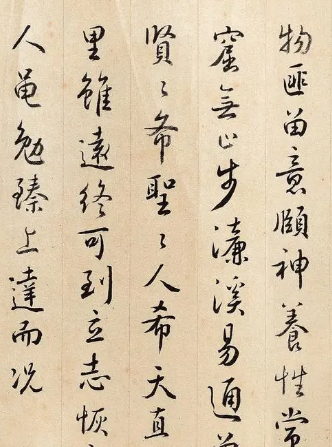 物匪留意頤神養性常
窟無山步濂溪易通
賢〻希聖〻人希天直
里雖遠終可到立志恢
人黽勉臻上達而况